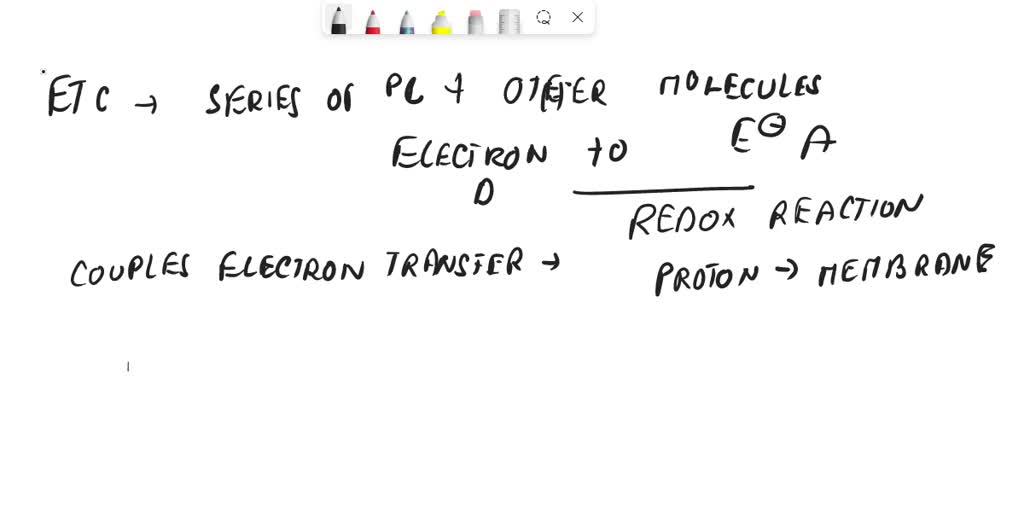 ETC → SERIES OF PC + OTHER MOLECULES
ELECTRON D to E⊖ A
REDOX REACTION
COUPLES ELECTRON TRANSFER → PROTON → MEMBRANE